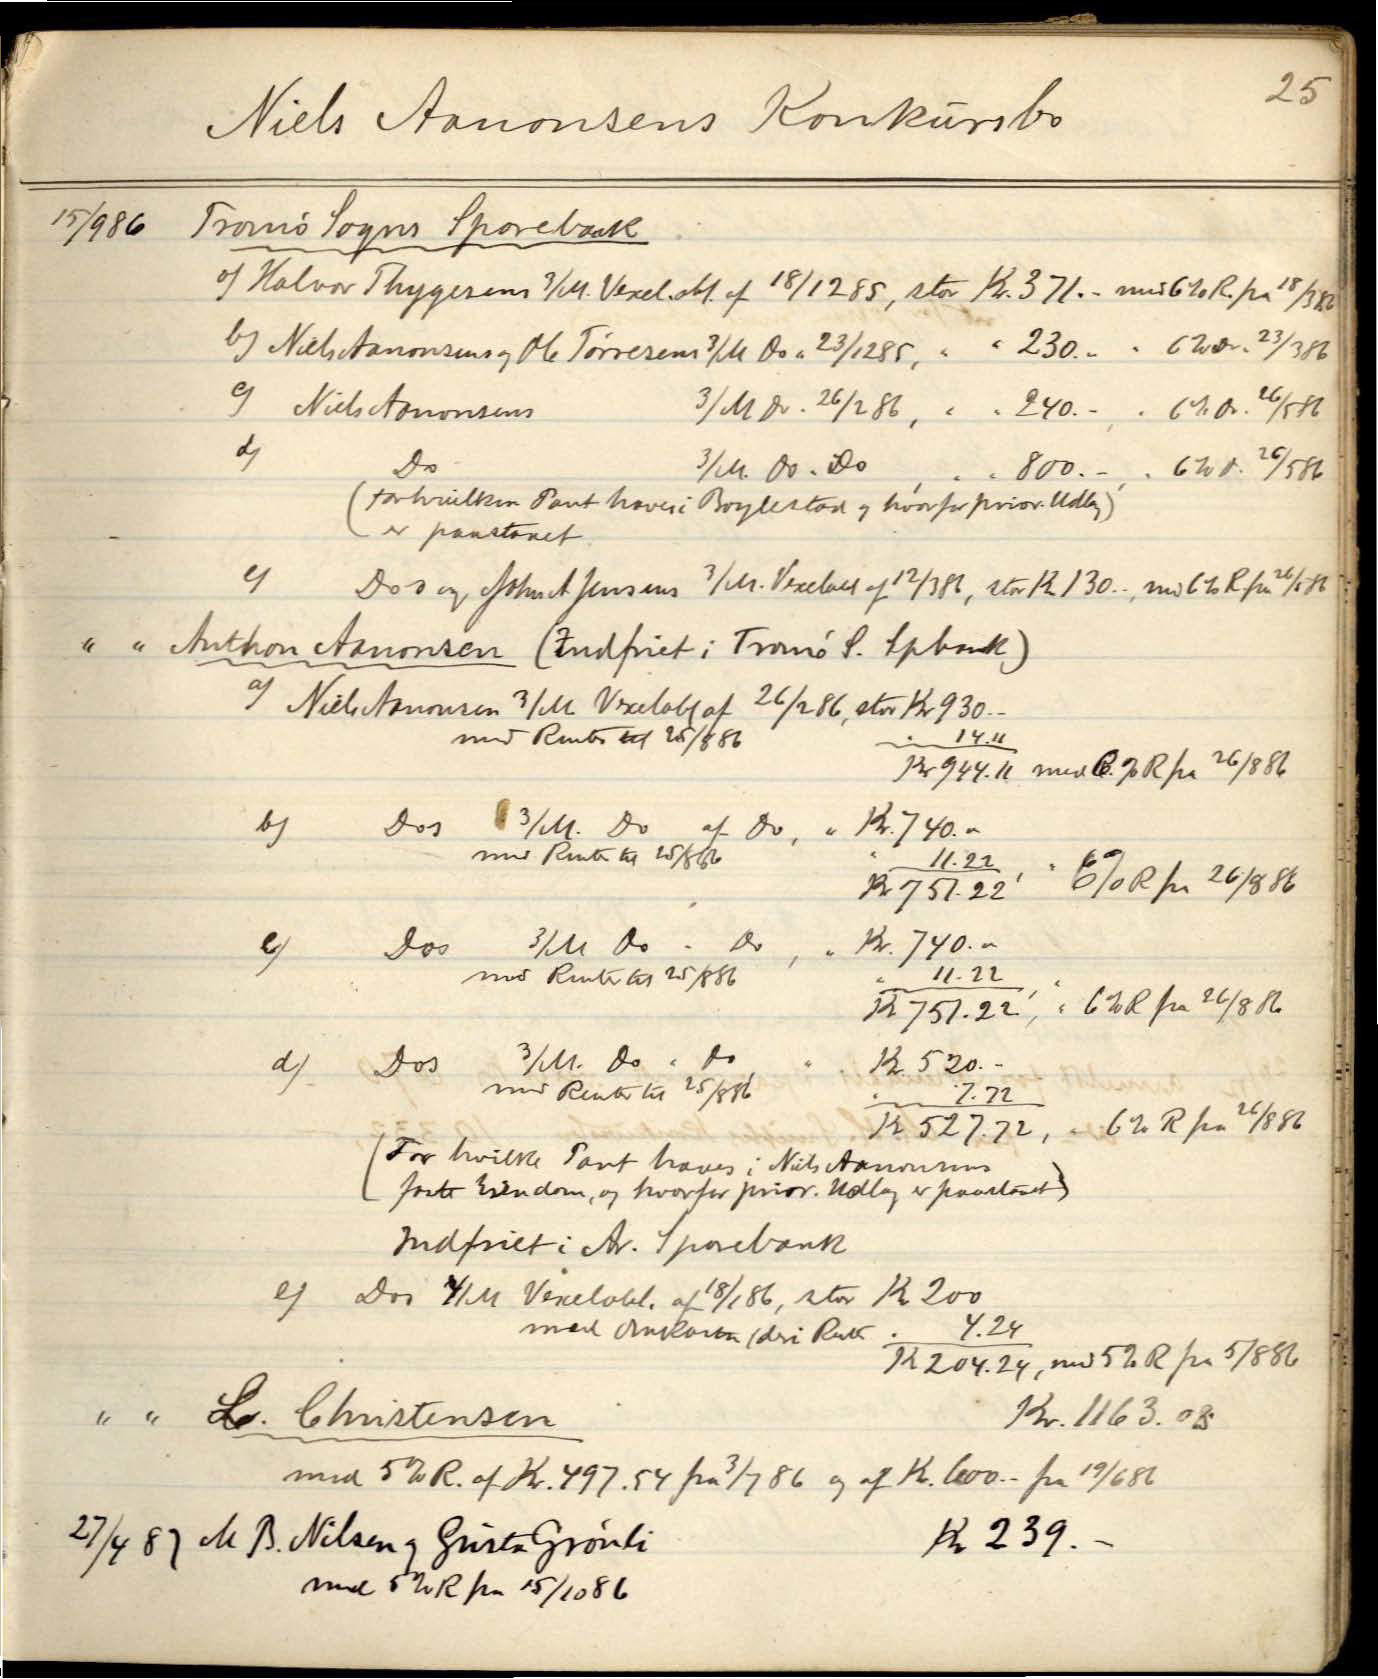 25
Niels Aanonsens Konkursbo
15/986 Tromö Sogns Sparebank
a) Halvor Thygesens 3/M. Vexel.obl. af 18/1285, stor Kr. 371.- med 6% R. fra 18/386
b) Niels Aanonsens og Ole Törresens 3/M Do " 23/1285, " " 230.- " 6% Do. " 23/386
c) Niels Aanonsens 3/M Do . 26/286, " " 240.- , " 6% Do. 26/586
d) Do 3/M. Do . Do , " " 800.- , " 6% D. 26/586
(for hvilken Pant haves i Boylestad og hvorfor prior. Udlæg)
er paastaaet
e) Dos og John A Jensens 3/M. Vexelobl af 12/386, stor Kr 130.-, med 6% R. fra 26/586
" " Anthon Aanonsen (Indfriet i Tromö S. Spbank)
a) Niels Aanonsen 3/M Vexelobl af 26/286, stor Kr 930.-
med Renter til 25/886 " 14.11
Kr 944.11 med 6.% R fra 26/886
b) Dos 3/M. Do af Do, " Kr. 740.-
med Renter til 25/886 " 11.22
Kr 751.22, " 6% R fra 26/886
c) Dos 3/M Do - Do, " Kr. 740.-
med Renter til 25/886 " 11.22
Kr 751.22, " 6% R fra 26/886
d) Dos 3/M. Do " Do, " Kr. 520.-
med Renter til 25/886 " 7.72
Kr 527.72, " 6% R fra 26/886
(For hvilke Pant haves i Niels Aanonsens
faste Eiendom, og hvorfor prior. Udlæg er paastaaet)
Indfriet i Ar. Sparebank
e) Dos 4/M Vexelobl. af 18/186, stor Kr 200
med Omkostn (deri Rente " 4.24
Kr 204.24, med 5% R fra 5/886
" " L. Christensen Kr. 1163.08
med 5% R. af Kr. 497.54 fra 3/786 og af Kr. 600.- fra 19/686
27/4 87 M B. Nilsen og Gusta Grönli Kr 239.-
med 5% R fra 15/1086